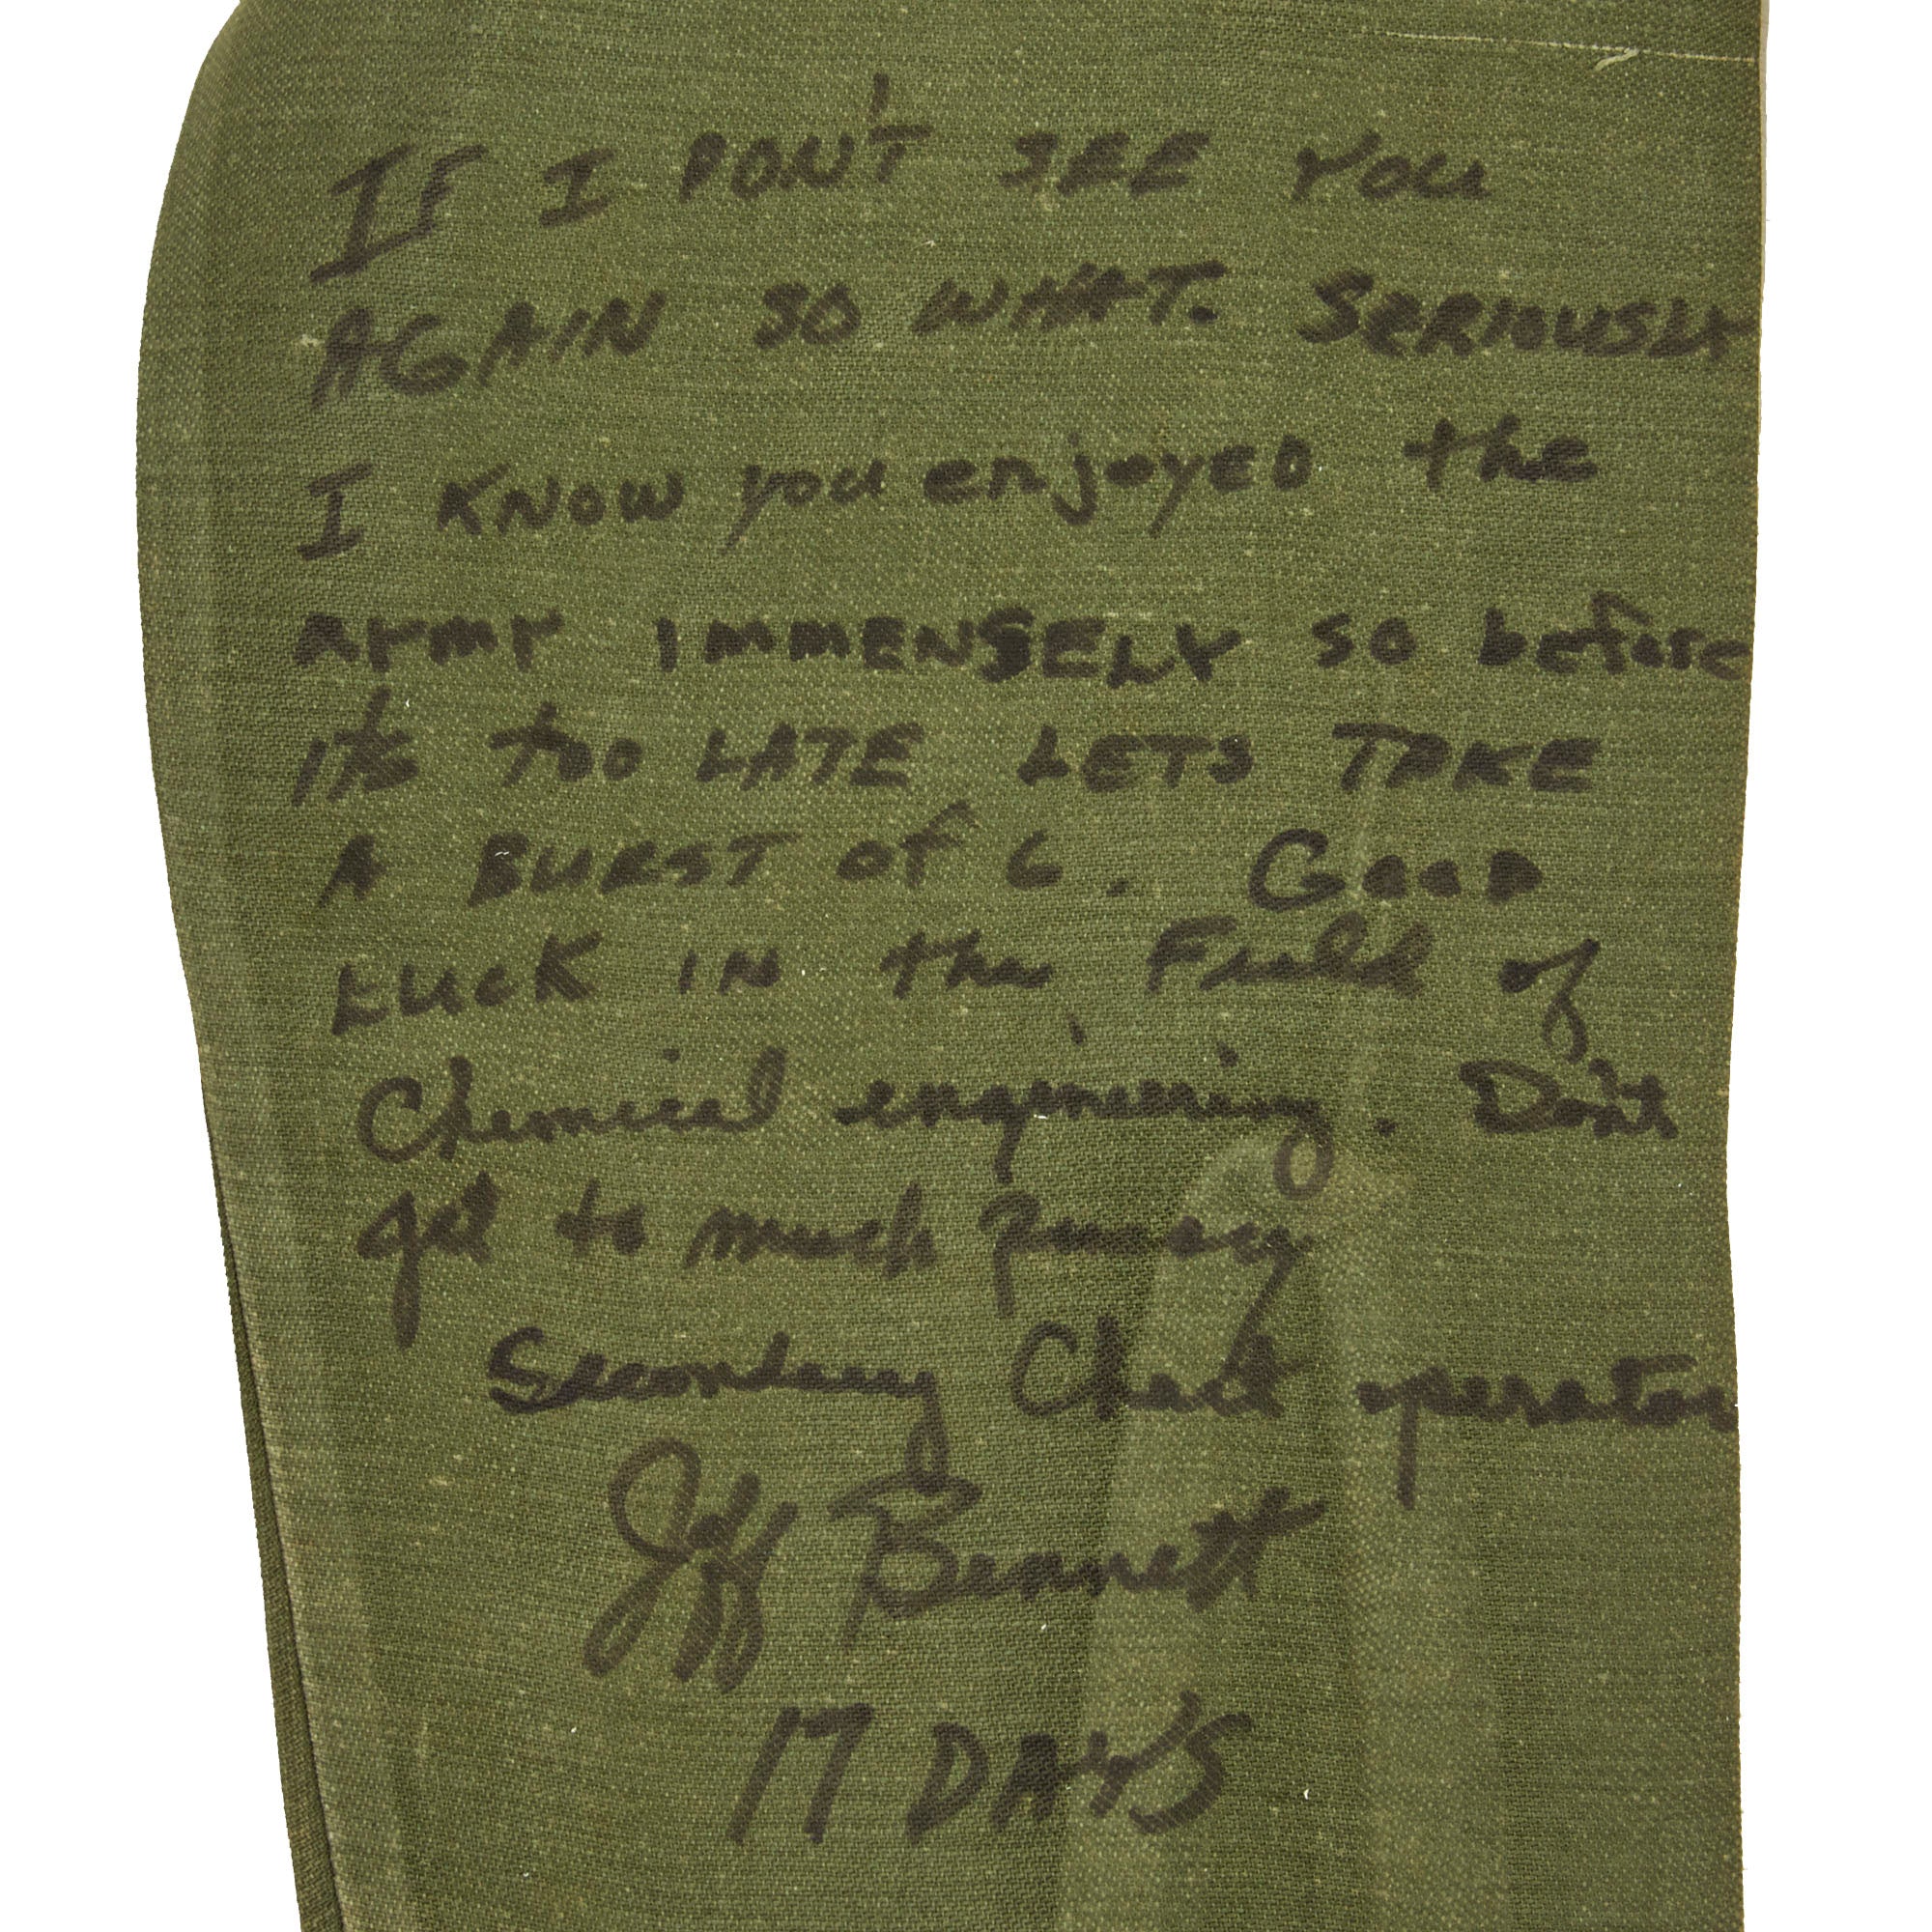 IF I DON'T SEE YOU
AGAIN SO WHAT. SERIOUSLY
I KNOW you enjoyED the
Army IMMENSELY SO before
it's too LATE LETS TAKE
A BURST OF 6. GOOD
LUCK IN the Field of
Chemical enginiering. Don't
get to much
Secondary Check operator
Jeff Bennett
17 DAYS